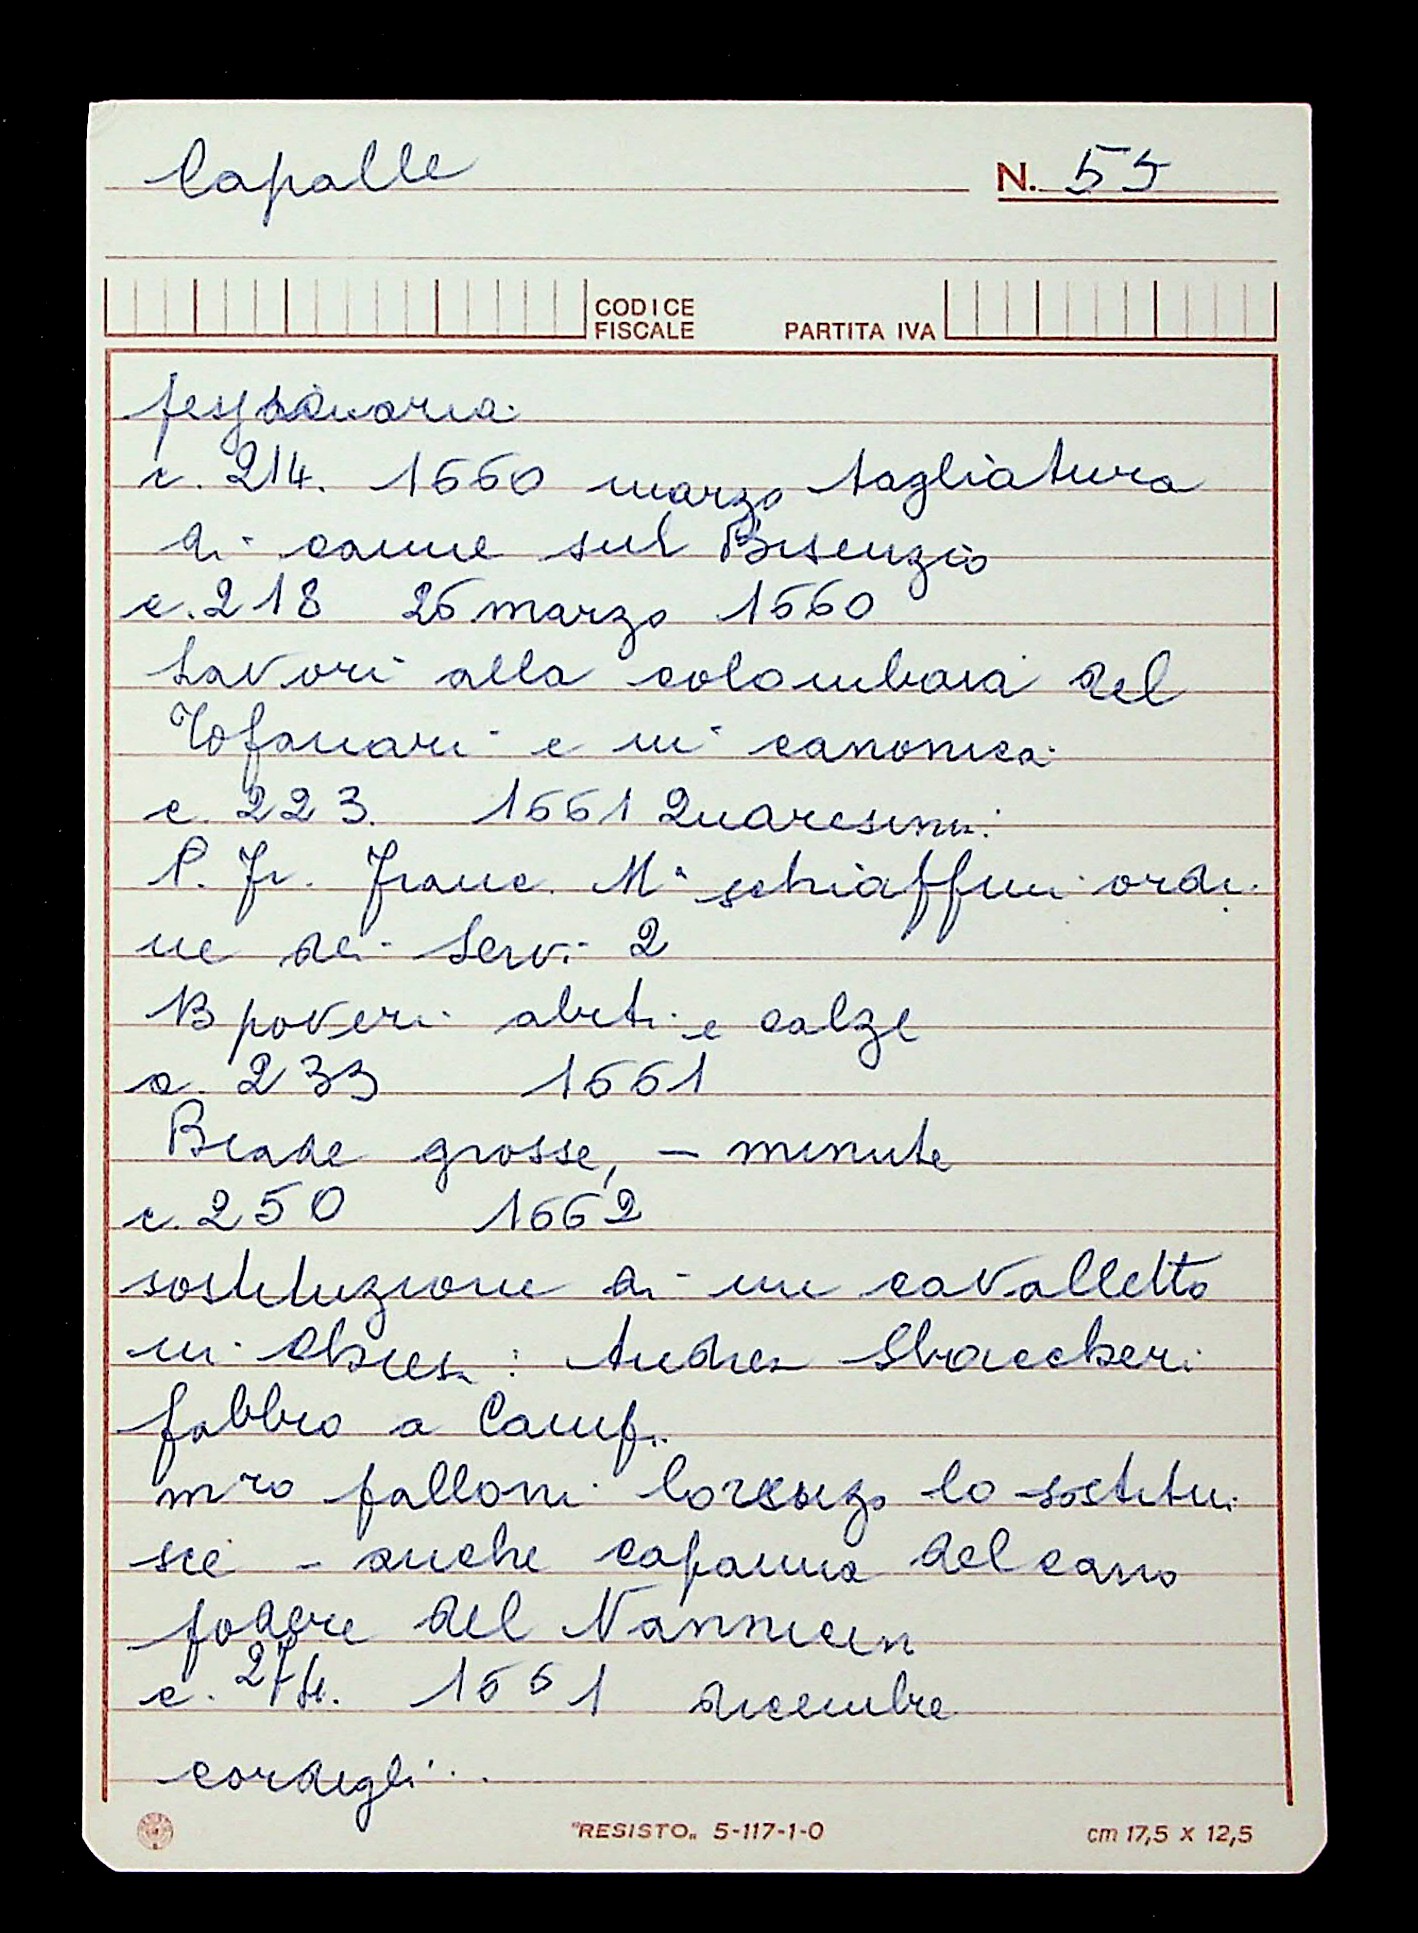 Capalle N. 55
CODICE
FISCALE PARTITA IVA
c. 214. 1660 marzo tagliatura
di canne sul Bisenzio
c. 218 26 marzo 1660
Lavori alla colombaia del
Tofanari e in canonica
c. 223. 1661 Quaresima:
P. Fr. Franc. Mª schiaffini ordi
ne dei Servi 2
13 poveri abiti e calze
a. 233 1661
Biade grosse, – minute
c. 250 1662
sostituzione di un cavalletto
in chiesa: Andrea Sbraccheri
fabbro a Campi.
mro falloni lorenzo lo sostitui
sce – anche capanna del carro
podere del Nannicin
c. 274. 1661 dicembre
cordigli...
"RESISTO" 5-117-1-0 cm 17,5 x 12,5